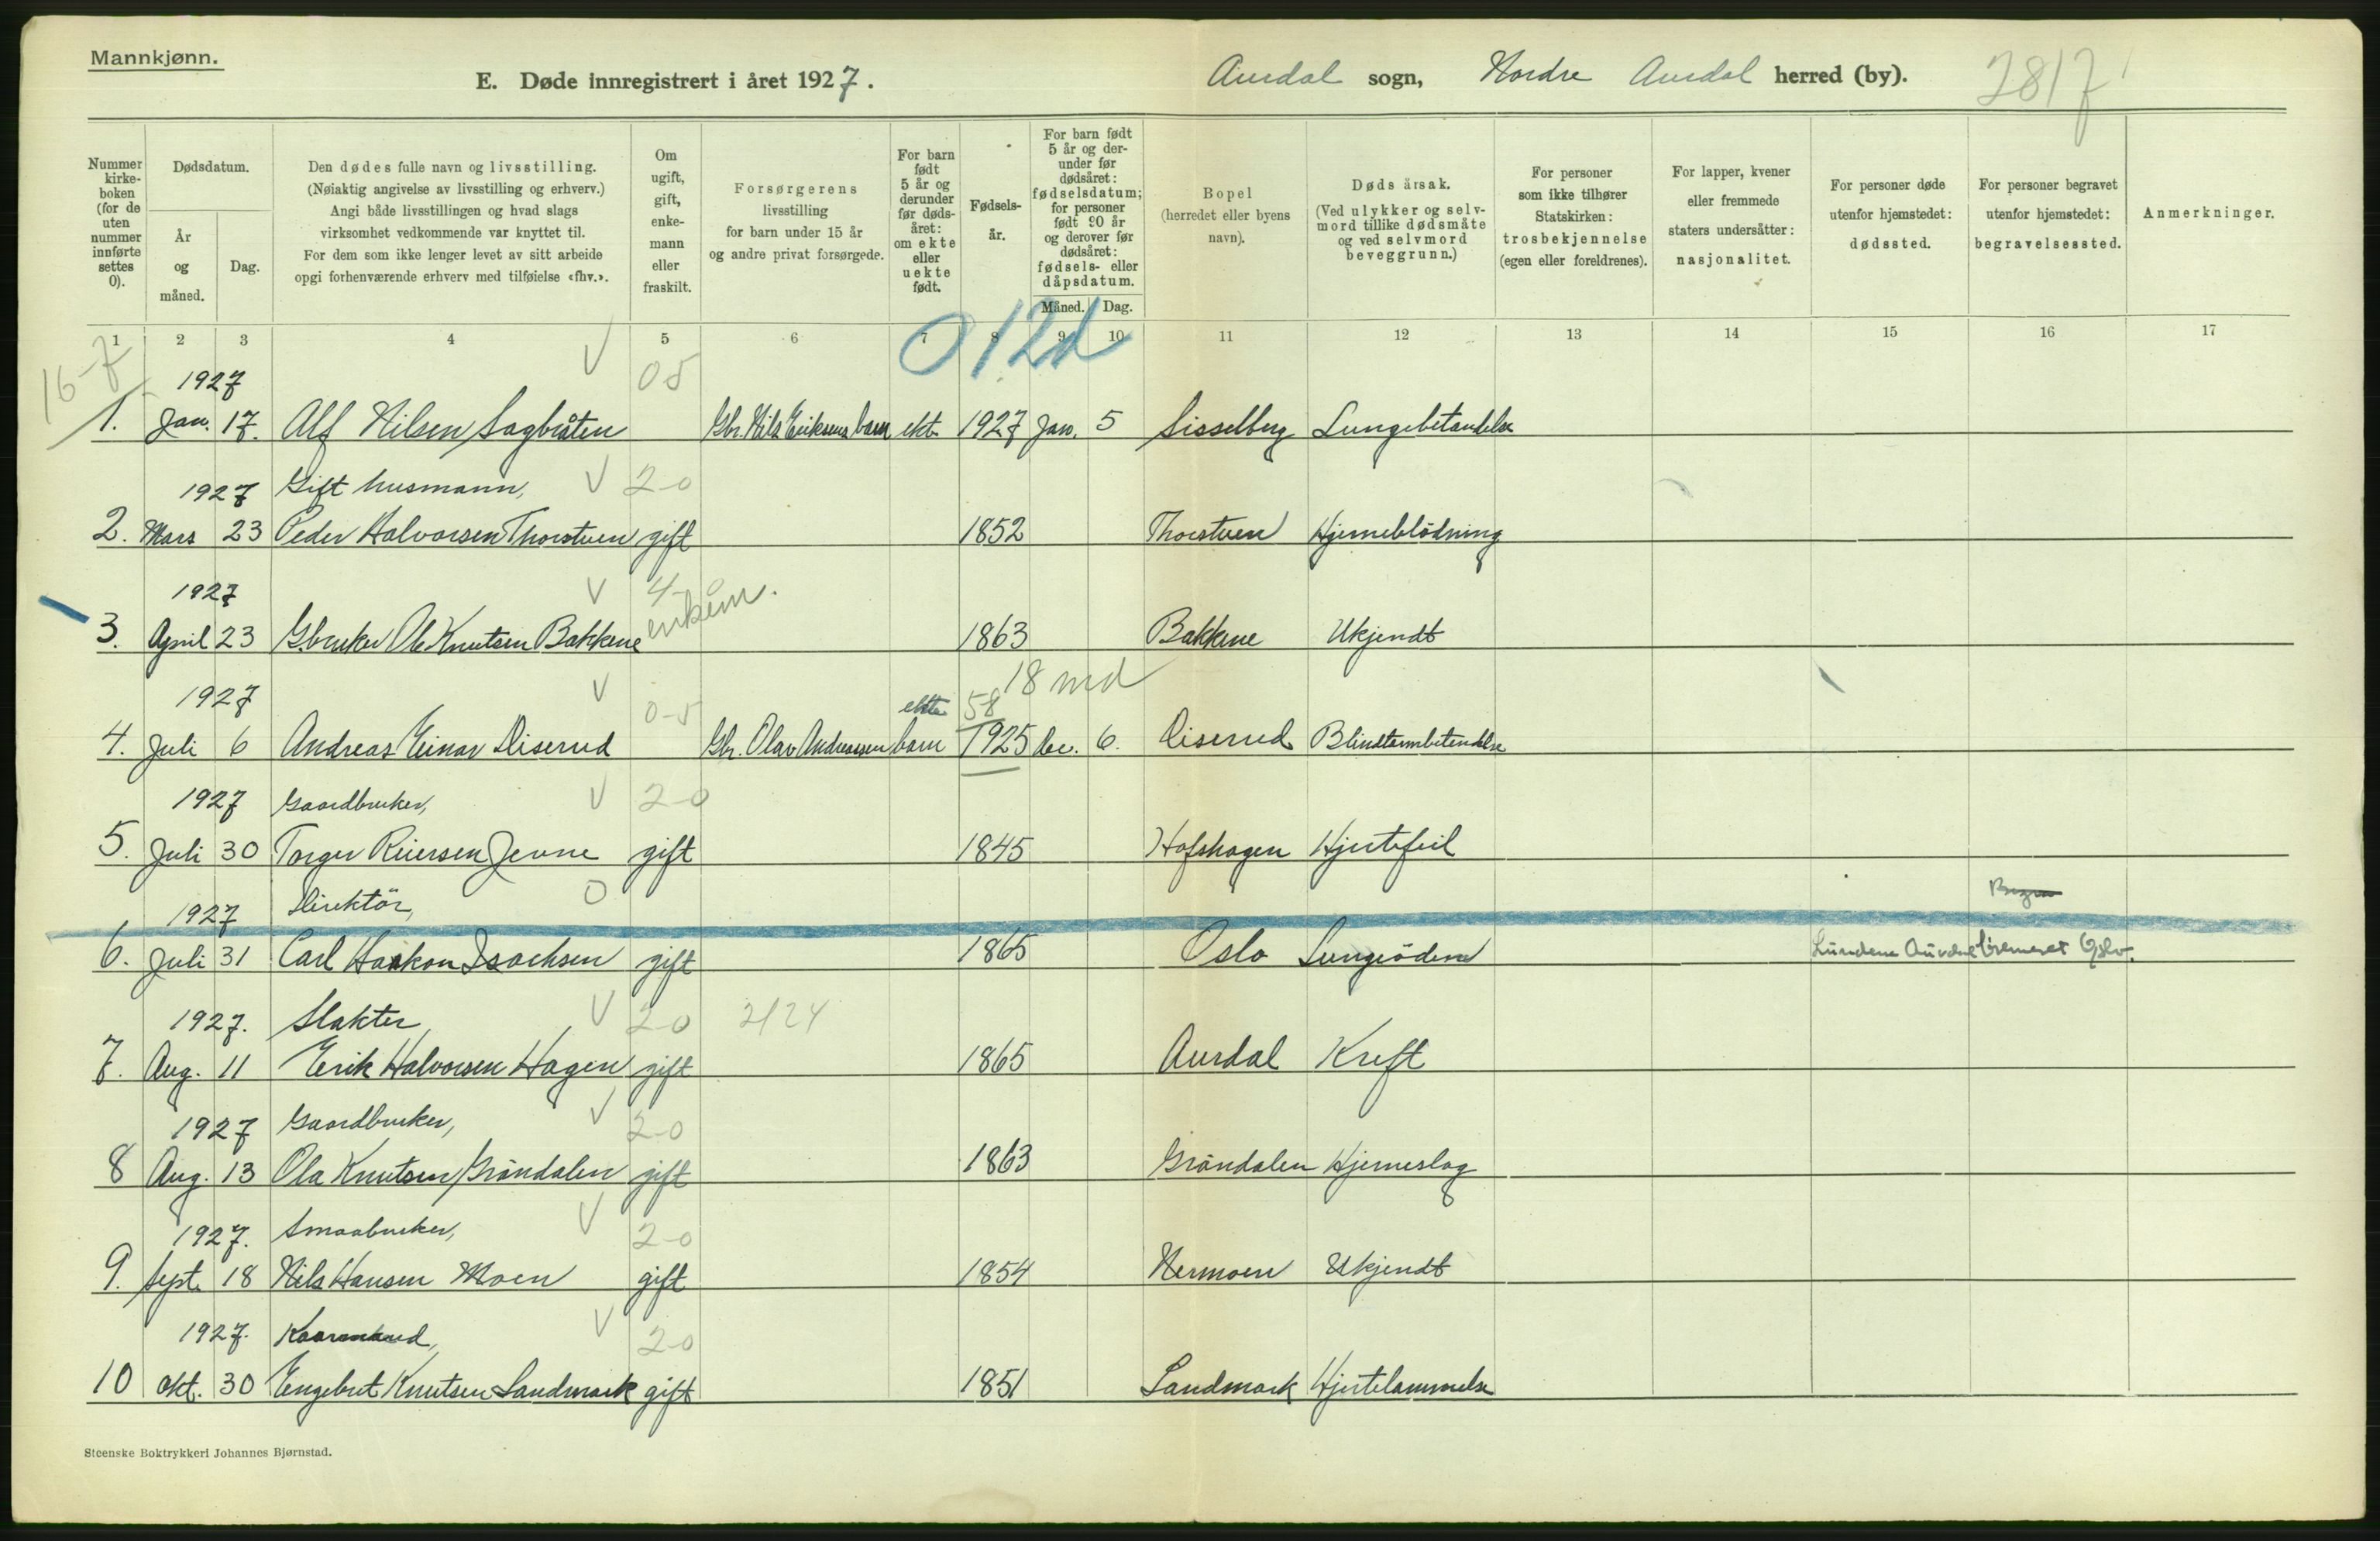 Mannkjønn.
E. Døde innregistrert i året 1927.
Aurdal sogn, Nordre Aurdal herred (by). 2817
Nummer kirke-boken (for de uten nummer innførte settes 0).
Dødsdatum.
År og måned.
Dag.
Den dødes fulle navn og livsstilling.
(Nøiaktig angivelse av livsstilling og erhverv.)
Angi både livsstillingen og hvad slags
virksomhet vedkommende var knyttet til.
For dem som ikke lenger levet av sitt arbeide
opgi forhenværende erhverv med tilføielse «fhv.».
Om ugift, gift, enke-mann eller fraskilt.
Forsørgerens
livsstilling
for barn under 15 år
og andre privat forsørgede.
For barn født 5 år og derunder før døds-året: om ekte eller uekte født.
Fødsels-år.
For barn født 5 år og der-under før dødsåret: fødselsdatum; for personer født 90 år og derover før dødsåret: fødsels- eller dåpsdatum.
Måned. Dag.
Bopel
(herredet eller byens navn).
Døds årsak.
(Ved ulykker og selv-mord tillike dødsmåte og ved selvmord beveggrunn.)
For personer som ikke tilhører Statskirken: trosbekjennelse (egen eller foreldrenes).
For lapper, kvener eller fremmede staters undersåtter: nasjonalitet.
For personer døde utenfor hjemstedet: dødssted.
For personer begravet utenfor hjemstedet: begravelsessted.
Anmerkninger.
1 2 3 4 5 6 7 8 9 10 11 12 13 14 15 16 17
16-7 012d
1927 V 05
1. Jan. 17. Alf Nilsen Sagbråten Gbr. Nils Eriksens barn ekt. 1927 Jan. 5 Sisselberg Lungebetændelse
1927 Gift husmann, V 2-0
2. Mars 23 Peder Halvorsen Thorstuen gift 1852 Thorstuen Hjerneblödning
1927 V 4-0
3. April 23 G.bruker Ole Knutsen Bakkene enkem. 1863 Bakkene Ukjendt
1927 V 0-5 ekte 58 18 md
4. Juli 6 Andreas Einar Diserud Gbr. Olav Andreassen barn 1925 Dec. 6. Diserud Blindtarmbetendelse
1927 Gaardbruker, V 2-0
5. Juli 30 Torger Reiersen Jevne gift 1845 Hofshagen Hjertefeil
1927 Direktör, O
6. Juli 31 Carl Haakon Isachsen gift 1865 Oslo Lungeödem Lundene Aurdal Kremeret Oslo.
1927. Slakter, V 20 2/24
7. Aug. 11 Erik Halvorsen Hagen gift 1865 Aurdal Kreft
1927 Gaardbruker, V 2-0
8 Aug. 13 Ola Knutsen Gröndalen gift 1863 Gröndalen Hjerneslag
1927. Smaabruker, V 2-0
9. Sept. 18 Nils Hansen Moen gift 1854 Nermoen Ukjendt
1927. Kaarmand, V 2-0
10 Okt. 30 Engebret Knutsen Landmark gift 1851 Landmark Hjertelammelse
Steenske Boktrykkeri Johannes Bjørnstad.